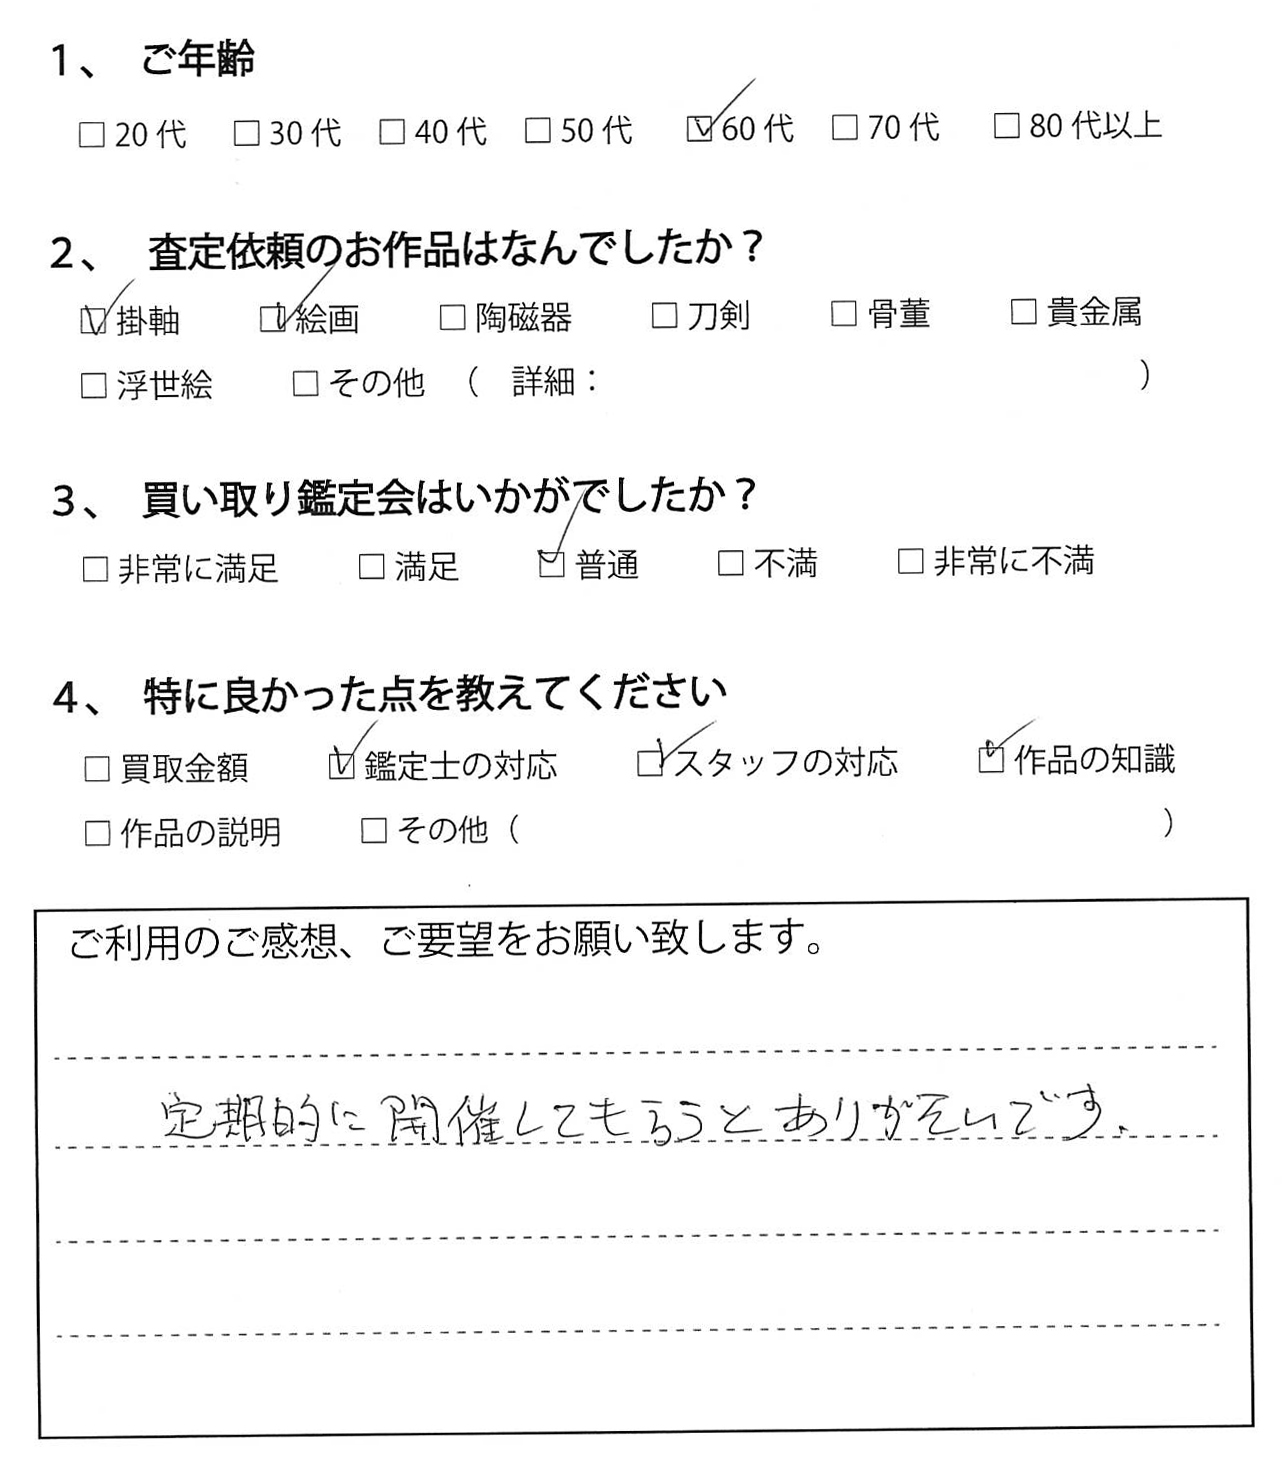 1、 ご年齢
□ 20 代 □ 30 代 □ 40 代 □ 50 代 ☑ 60 代 □ 70 代 □ 80 代以上
2、 査定依頼のお作品はなんでしたか？
☑ 掛軸 ☑ 絵画 □ 陶磁器 □ 刀剣 □ 骨董 □ 貴金属
□ 浮世絵 □ その他 （ 詳細： ）
3、 買い取り鑑定会はいかがでしたか？
□ 非常に満足 □ 満足 ☑ 普通 □ 不満 □ 非常に不満
4、 特に良かった点を教えてください
□ 買取金額 ☑ 鑑定士の対応 ☑ スタッフの対応 ☑ 作品の知識
□ 作品の説明 □ その他（ ）
ご利用のご感想、ご要望をお願い致します。
定期的に開催してもらうとありがたいです.